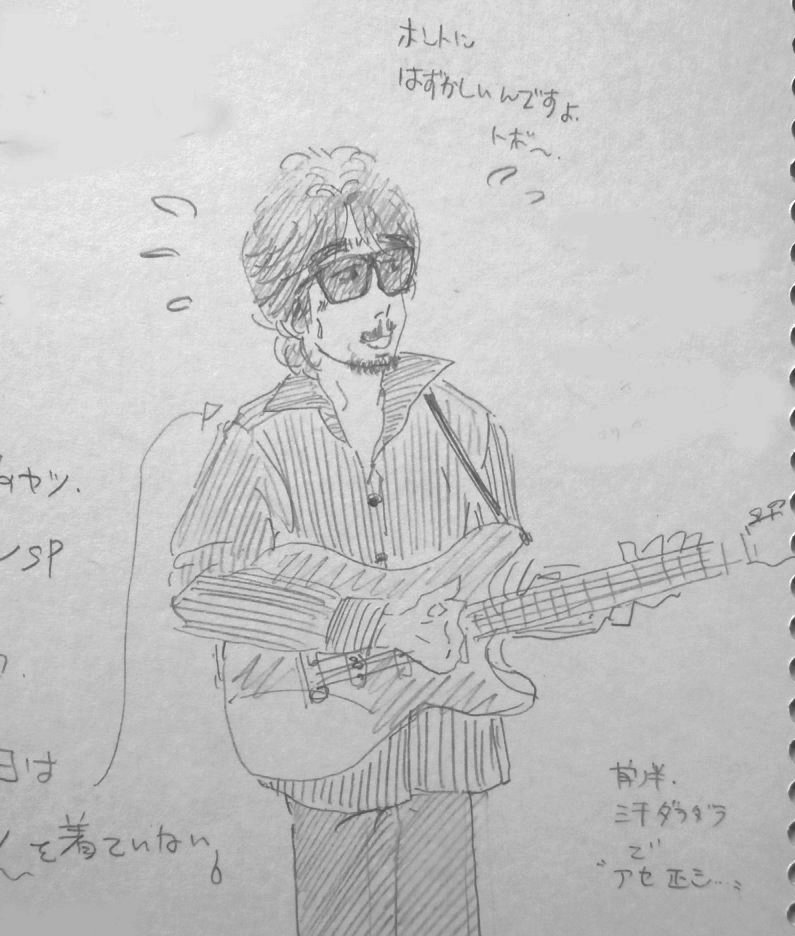 ホントに
はずかしいんですよ.
トホ~.
ヤツ.
SP
日は
を着ていない
前半.
汗ダラダラ
で
アセ